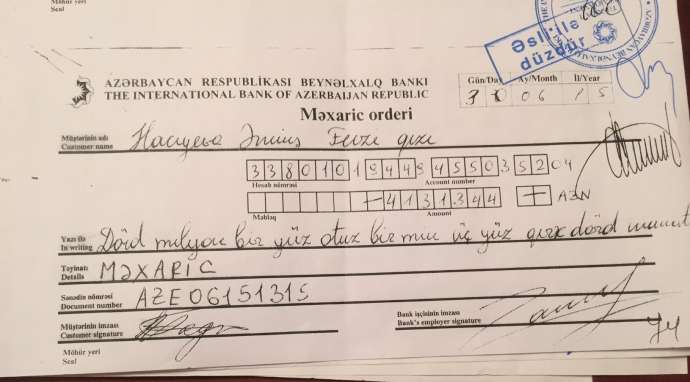 Möhür yeri
Seal
Əsli ilə
düzdür
AZƏRBAYCAN RESPUBLİKASI BEYNƏLXALQ BANKI
THE INTERNATIONAL BANK OF AZERBAIJAN REPUBLIC
Gün/Day Ay/Month İl/Year
06 15
Məxaric orderi
Müştərinin adı
Customer name
qızı
33801019449455035204
Hesab nömrəsi Account number
4131344 AZN
Məbləğ Amount
Yazı ilə
In writing Dörd milyon bir yüz otuz bir min üç yüz qırx dörd manat
Təyinatı
Details MƏXARİC
Sənədin nömrəsi
Document number AZE06151315
Müştərinin imzası
Customer signature
Bank işçisinin imzası
Bank's employer signature
Möhür yeri
Seal